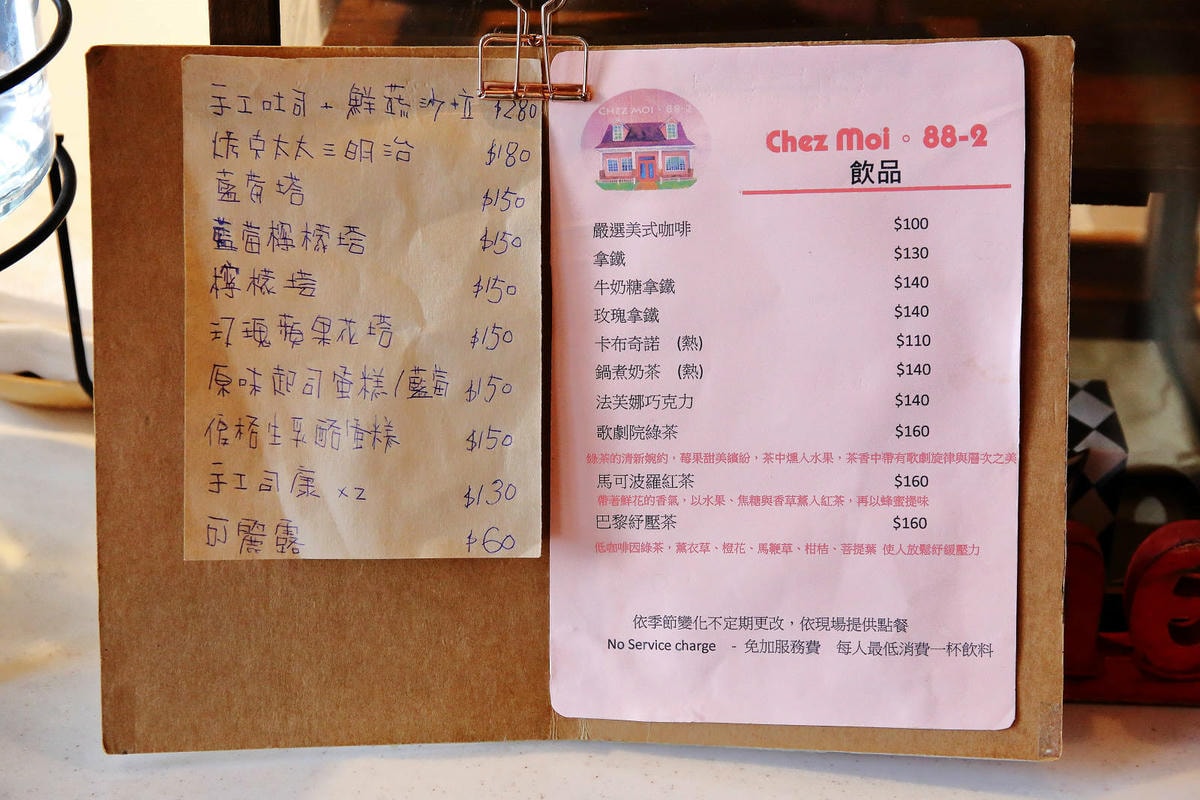 手工吐司+鮮蔬沙拉 $280
烤克太太三明治 $180
藍莓塔 $150
藍莓檸檬塔 $150
檸檬塔 $150
玫瑰蘋果花塔 $150
原味起司蛋糕/藍莓 $150
生乳酪蛋糕 $150
手工司康 x2 $130
可麗露 $60
CHEZ MOI · 88-2
Chez Moi。88-2
飲品
嚴選美式咖啡 $100
拿鐵 $130
牛奶糖拿鐵 $140
玫瑰拿鐵 $140
卡布奇諾 (熱) $110
鍋煮奶茶 (熱) $140
法芙娜巧克力 $140
歌劇院綠茶 $160
綠茶的清新婉約，莓果甜美繽紛，茶中燻入水果，茶香中帶有歌劇旋律與層次之美
馬可波羅紅茶 $160
帶著鮮花的香氣，以水果、焦糖與香草薰入紅茶，再以蜂蜜提味
巴黎紓壓茶 $160
低咖啡因綠茶，薰衣草、橙花、馬鞭草、柑桔、菩提葉 使人放鬆紓緩壓力
依季節變化不定期更改，依現場提供點餐
No Service charge - 免加服務費 每人最低消費一杯飲料